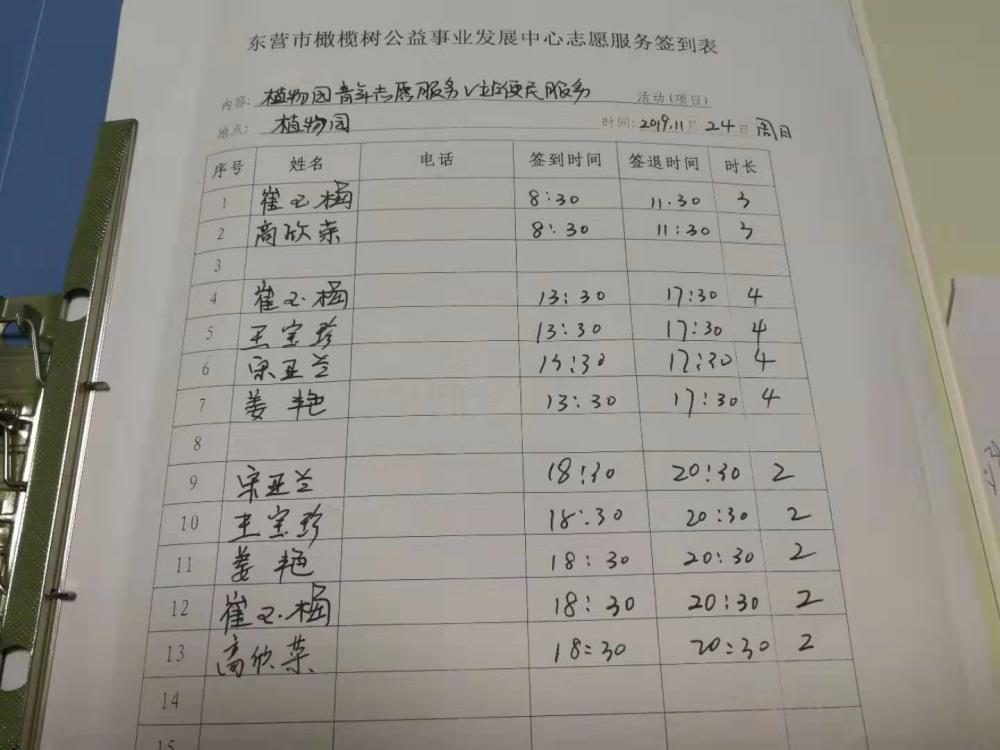 东营市橄榄树公益事业发展中心志愿服务签到表
内容: 植物园青年志愿服务V站便民服务 活动(项目)
地点: 植物园 时间: 2019.11月24日 周日
序号 姓名 电话 签到时间 签退时间 时长
1 崔玉梅 8:30 11.30 3
2 高欣荣 8:30 11:30 3
3
4 崔玉梅 13:30 17:30 4
5 王宝珍 13:30 17:30 4
6 宋亚兰 13:30 17:30 4
7 姜艳 13:30 17:30 4
8
9 宋亚兰 18:30 20:30 2
10 王宝珍 18:30 20:30 2
11 姜艳 18:30 20:30 2
12 崔玉梅 18:30 20:30 2
13 高欣荣 18:30 20:30 2
14
15